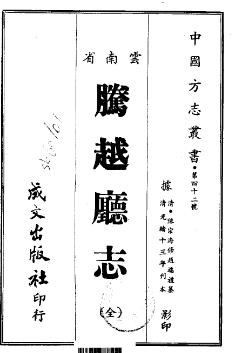 中國方志叢書・第四十二號
據
清・陳宗海修趙端禮纂
清光緒十三年刊本
影印
雲南省
騰越廳志
(全)
成文出版社印行